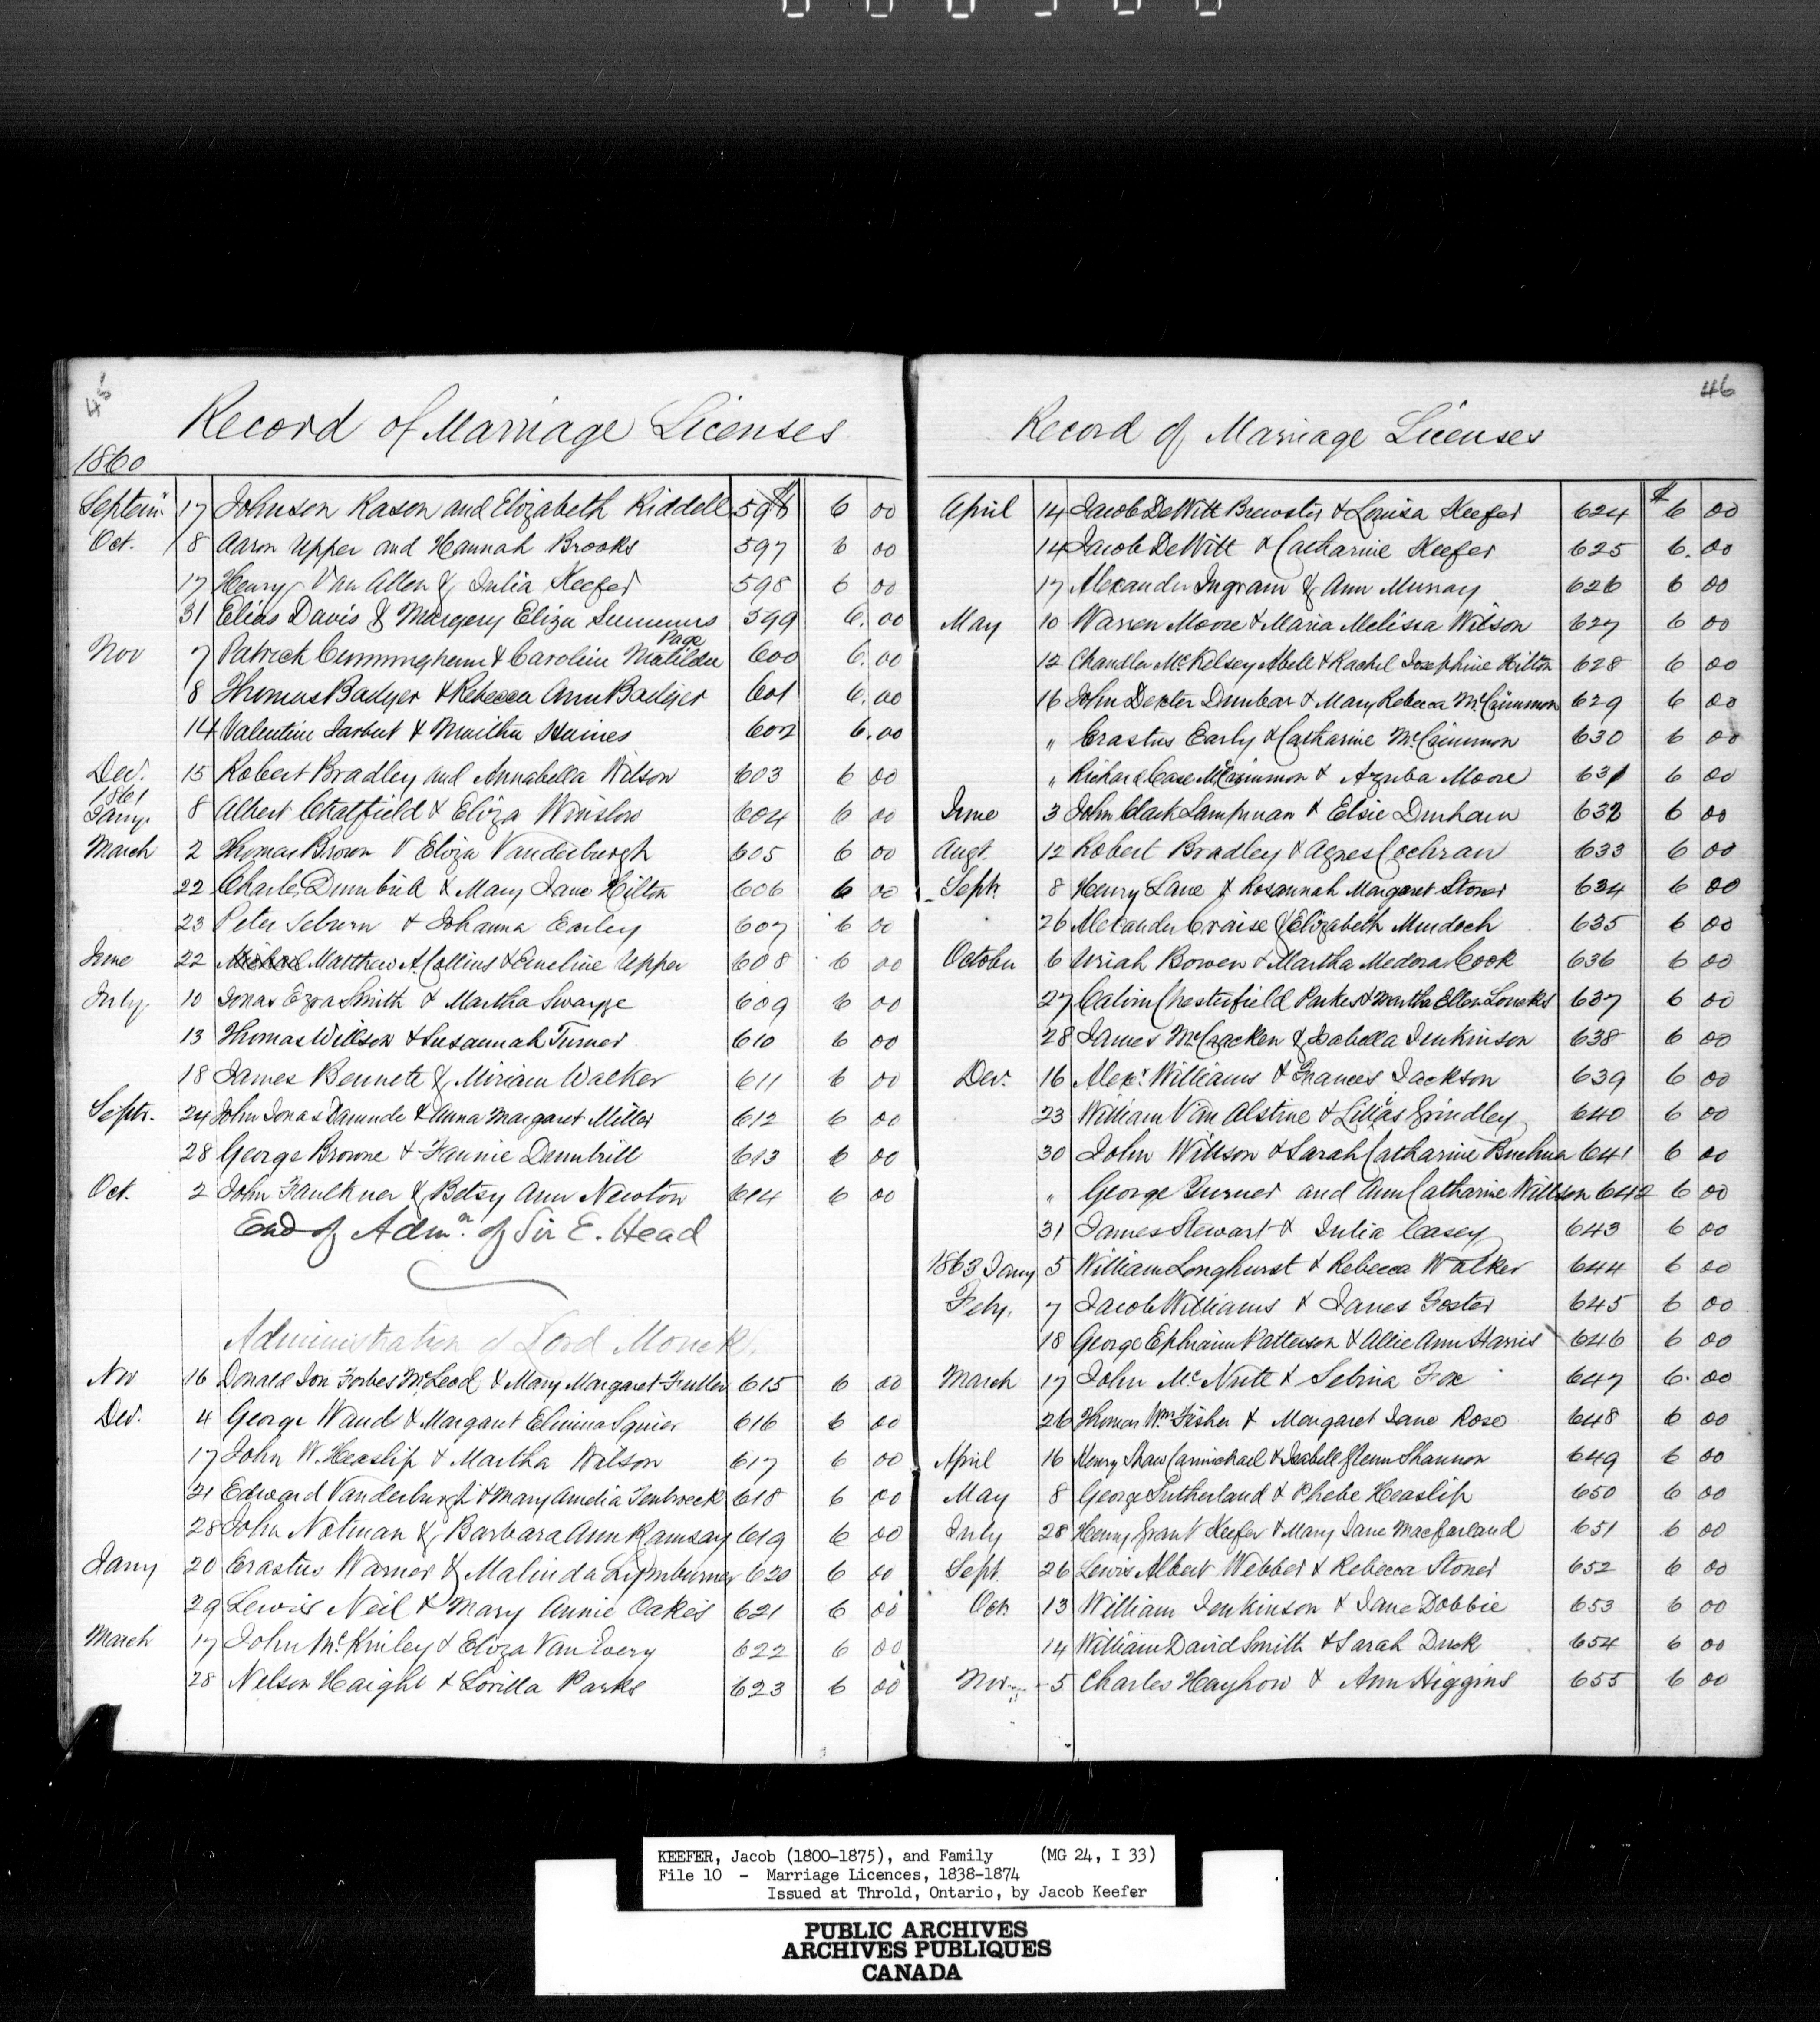 45
Record of Marriage Licenses
1860
Septem 17 Johnson Rason and Elizabeth Riddell 596 $ 6 00
Oct. 8 Aaron Upper and Hannah Brooks 597 6 00
17 Henry Van Allen & Julia Keefer 598 6 00
31 Elias Davis & Margery Eliza Summers 599 6.00
Page
Nov 7 Patrick Cunningham & Caroline Matilda 600 6.00
8 Thomas Badger & Rebecca Ann Badger 601 6.00
14 Valentine & Haines 602 6.00
Dec. 15 Robert Bradley and Annabella Wilson 603 6 00
1861
Jany. 8 Albert Chatfield & Eliza Winslow 604 6 00
March 2 Thomas Brown & Eliza Vanderburgh 605 6 00
22 Charles Dumbrill & Mary Jane Hilton 606 6 00
23 Peter Seburn & Johanna Earley 607 6 00
June 22 Matthew A Collins & Emeline Upper 608 6 00
July 10 Jonas Ezra Smith & Martha Swayze 609 6 00
13 Thomas Willson & Susannah Turner 610 6 00
18 James Bennett & Miriam Walker 611 6 00
Septr. 24 John Jonas & Anna Margaret Miller 612 6 00
28 George Browne & Fannie Dumbrill 613 6 00
Oct. 2 John Faulkner & Betsy Ann Newton 614 6 00
End of Admn. of Sir E. Head
Administration of Lord Monck.
Nov 16 Donald Jon Forbes McLeod & Mary Margaret Fuller 615 6 00
Dec. 4 George Waud & Margaret Elmina Squier 616 6 00
17 John W. Heaslip & Martha Wilson 617 6 00
21 Edward Vanderburgh & Mary Amelia Tenbroeck 618 6 00
28 John Notman & Barbara Ann Ramsay 619 6 00
Jany 20 Erastus Warner & Malinda Lymburner 620 6 00
29 Lewis Neil & Mary Annie Oakes 621 6 00
March 17 John McKinley & Eliza Van Every 622 6 00
28 Nelson Haight & Lorilla Parks 623 6 00
46
Record of Marriage Licenses
April 14 Jacob DeWitt Brewster & Louisa Keefer 624 $ 6 00
14 Jacob DeWitt & Catharine Keefer 625 6.00
17 Alexander Ingram & Ann Murray 626 6 00
May 10 Warren Moore & Maria Melissa Wilson 627 6 00
12 Chandler McKelsey Abell & Rachel Josephine Hilton 628 6 00
16 John Dexter Dunbar & Mary Rebecca McCrimmon 629 6 00
" Erastus Early & Catharine McCrimmon 630 6 00
" Richard Case McCrimmon & Azuba Moore 631 6 00
June 3 John Clark Lampman & Elsie Dunham 632 6 00
Augt. 12 Robert Bradley & Agnes Cochran 633 6 00
Septr. 8 Henry Lane & Rosannah Margaret Stoner 634 6 00
26 Alexander Craise & Elizabeth Murdoch 635 6 00
October 6 Uriah Bowen & Martha Medora Cook 636 6 00
27 Calvin Chesterfield Parker & Martha Ellen Loucks 637 6 00
28 James McCracken & Isabella Jenkinson 638 6 00
Dec. 16 Alexr Williams & Frances Jackson 639 6 00
23 William Van Alstine & Lillias Grindley 640 6 00
30 John Willson & Sarah Catharine Buchner 641 6 00
" George Turner and Ann Catharine Willson 642 6 00
31 James Stewart & Julia Casey 643 6 00
1863 Jany 5 William Longhurst & Rebecca Walker 644 6 00
Feby. 7 Jacob Williams & Janes Foster 645 6 00
18 George Ephraim Patterson & Allie Ann Harris 646 6 00
March 17 John McNutt & Selina Fox 647 6.00
26 Thomas Wm Fisher & Margaret Jane Rose 648 6 00
April 16 Henry Shaw Carmichael & Isabell Glenn Shannon 649 6 00
May 8 George Sutherland & Phebe Heaslip 650 6 00
July 28 Henry Grant Keefer & Mary Jane Macfarland 651 6 00
Sept. 26 Lewis Albert Webber & Rebecca Stoner 652 6 00
Oct. 13 William Jenkinson & Jane Dobbie 653 6 00
14 William David Smith & Sarah Duck 654 6 00
Nov. 5 Charles Hayhow & Ann Higgins 655 6 00
KEEFER, Jacob (1800-1875), and Family (MG 24, I 33)
File 10 - Marriage Licences, 1838-1874
Issued at Throld, Ontario, by Jacob Keefer
PUBLIC ARCHIVES
ARCHIVES PUBLIQUES
CANADA